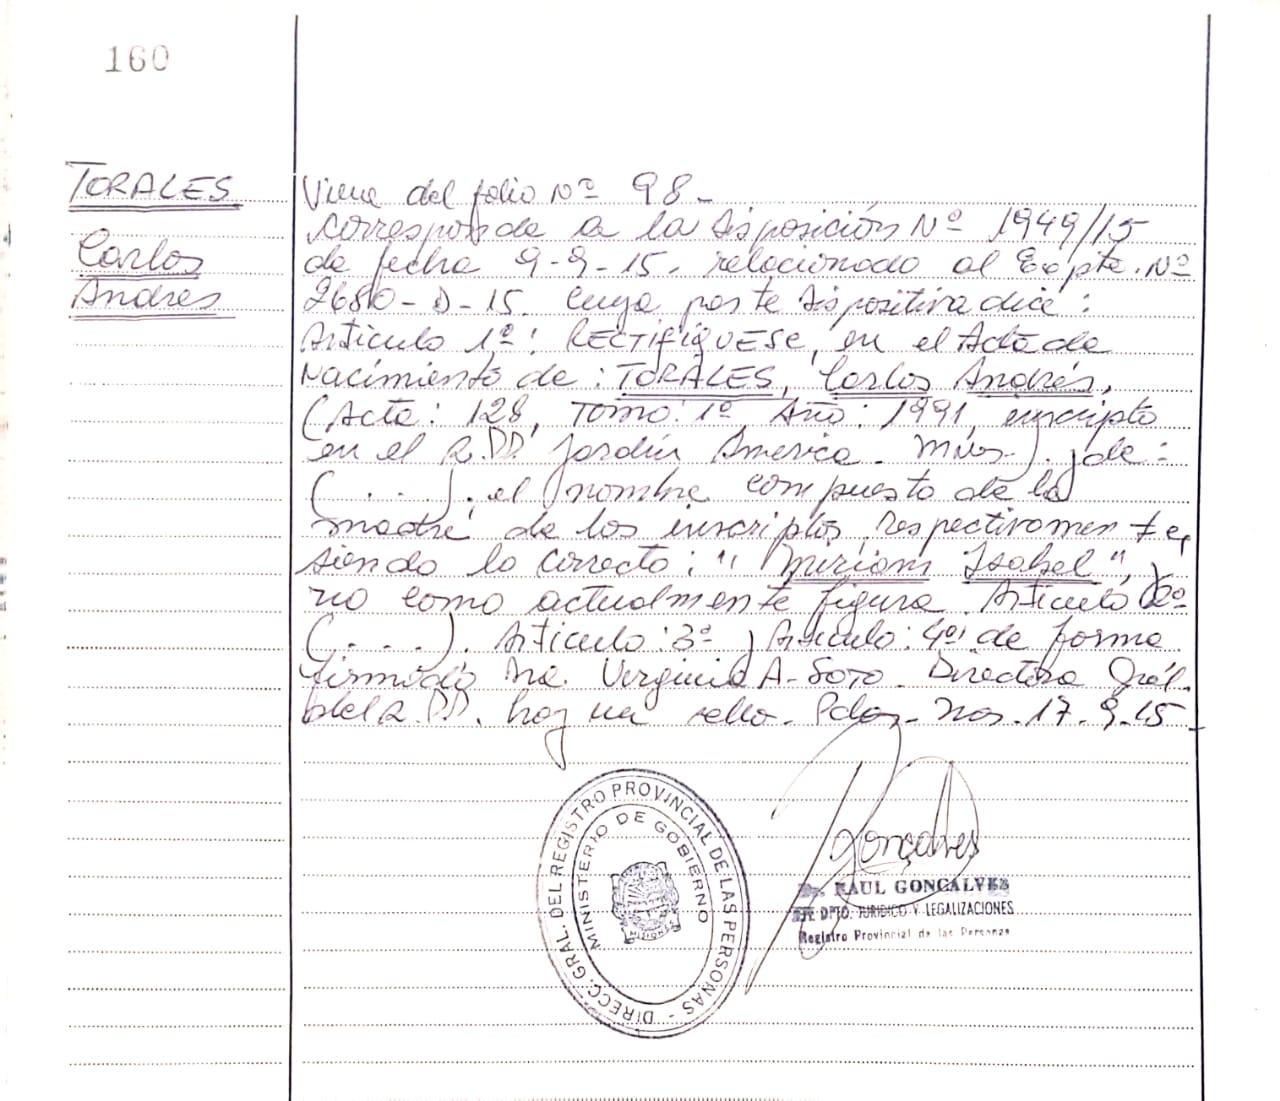 160
TORALES
Carlos
Andres
Viene del folio Nº 98_
corresponde a la disposición Nº 1949/15
de fecha 9-9-15. relacionado al Expte. Nº
2680-D-15. cuya parte dispositiva dice:
Artículo 1º: RECTIFÍQUESE, en el Acta de
Nacimiento de: TORALES, Carlos Andrés,
(Acta: 128, Tomo: 1º Año: 1991, inscripto
en el R.PP. Jardín America. Mnes.). de:
(. . . .). el nombre compuesto de la
madre de los inscriptos, respectivamente,
siendo lo correcto: "Miriam Isabel",
no como actualmente figura. Artículo 2º
(. . . .). Artículo: 3º y Artículo: 4º: de forma
firmado Dra. Virginia A. Soto. Directora Gral.
del R.PP. hay un sello. Pdas. Mnes. 17.9.15_
DIRECC. GRAL. DEL REGISTRO PROVINCIAL DE LAS PERSONAS -
MINISTERIO DE GOBIERNO
MISIONES
Gonçalves
Dr. RAUL GONCALVES
JEFE DPTO. JURIDICO Y LEGALIZACIONES
Registro Provincial de las Personas